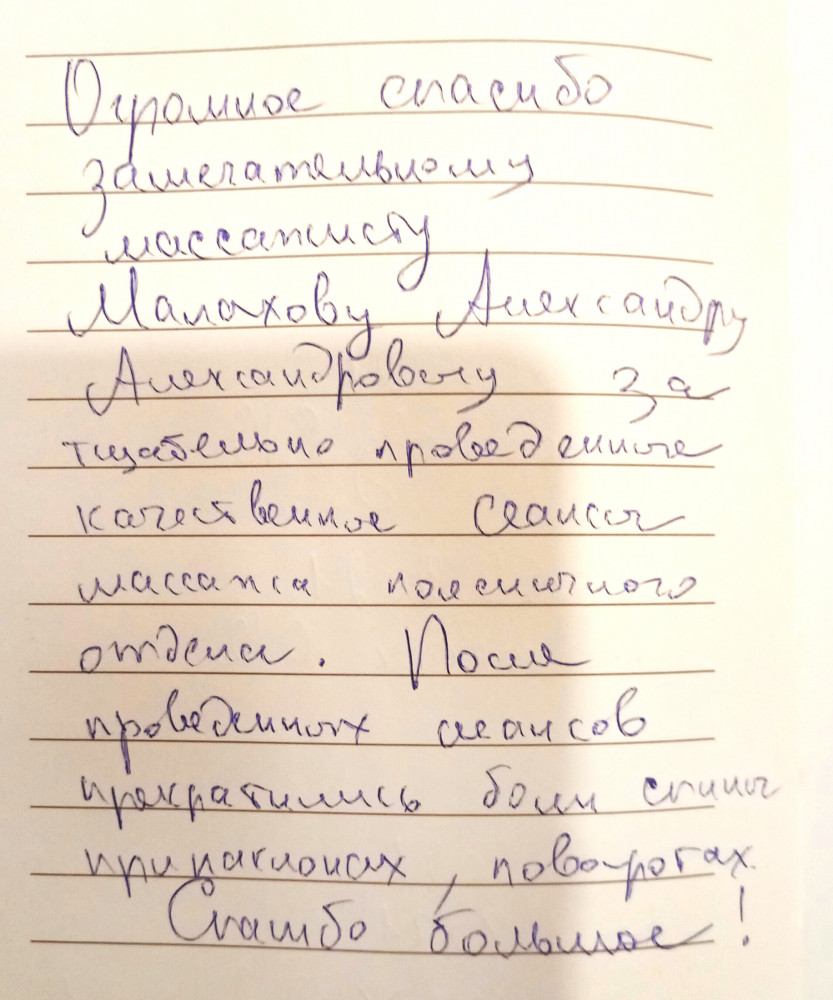 Огромное спасибо
замечательному
массажисту
Малахову Александру
Александровичу за
тщательно проведенные
качественное сеансы
массажа поясничного
отдела. После
проведенных сеансов
прекратились боли спины
при наклонах, поворотах.
Спасибо большое!